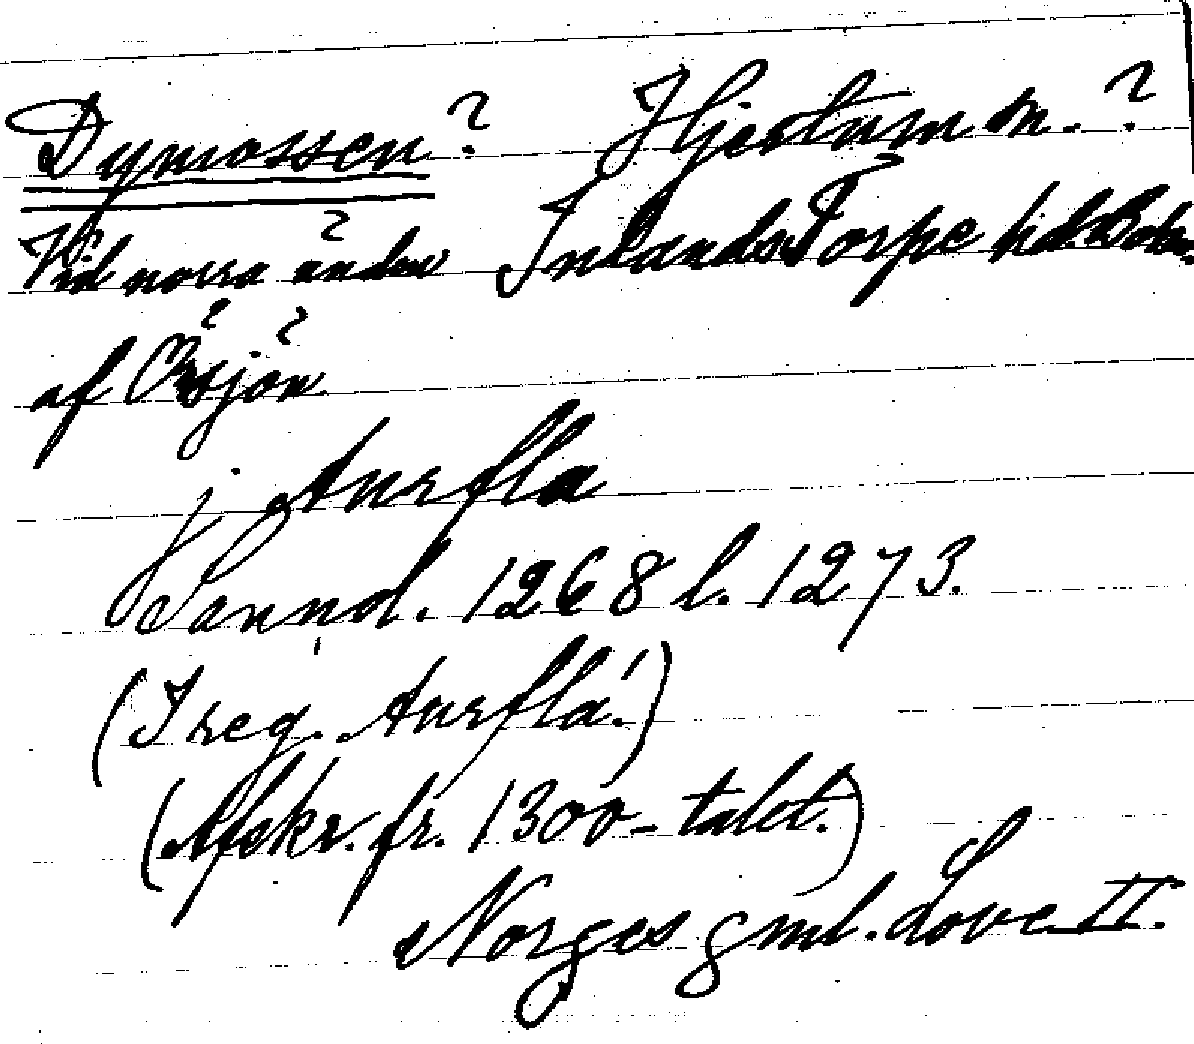 Dymossen? Hjertum sn.?
Vid norra ändan? Inlands Torpe hd. Bohn.
af Örsjön??
j Aurfla
Sannd. 1268 l. 1273.
(I reg. Aurflá.)
(Afskr. fr. 1300-talet.)
Norges gml. Love II.